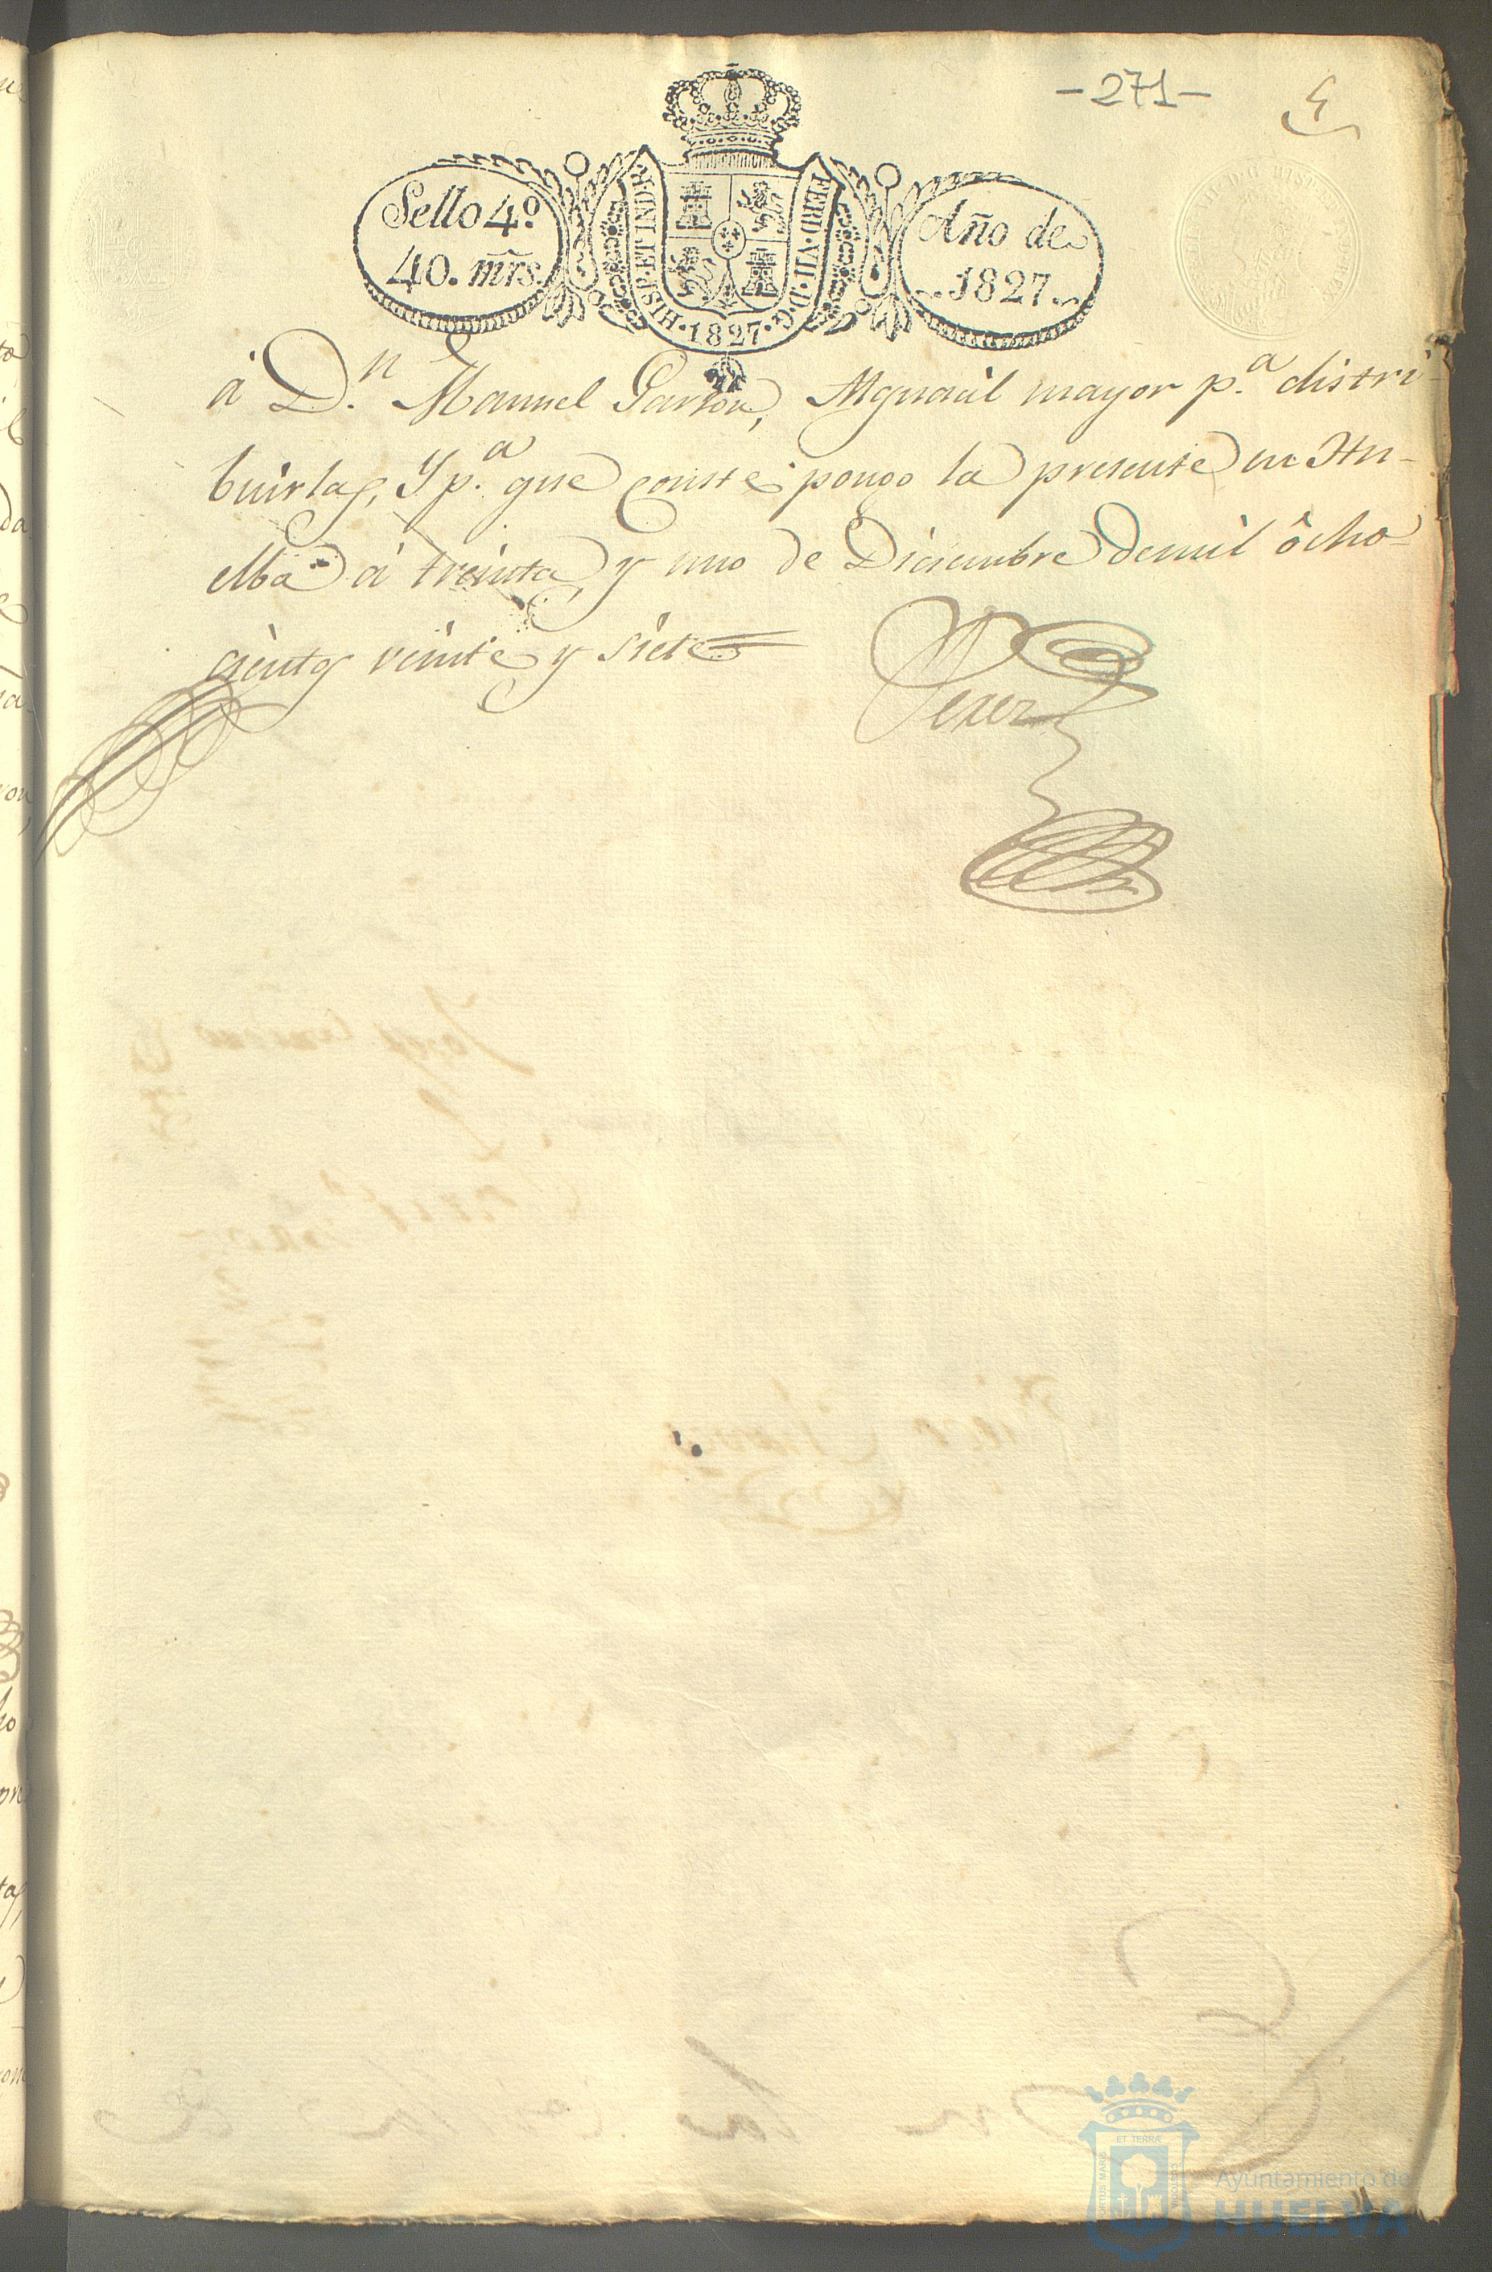 - 271 -
Sello 4º
40. mrs.
FERD · VII · D · G · 1827 · HISP · ET · IND · R
Año de
1827.
á D.n Manuel Garzon, Alguacil mayor p.a distri-
buirlas, Y p.a que conste pongo la presente en Hu-
elba á treinta y uno de Diciembre de mil ôcho-
cientos veinte y siete
Perez
ET TERRÆ
Ayuntamiento de
HUELVA